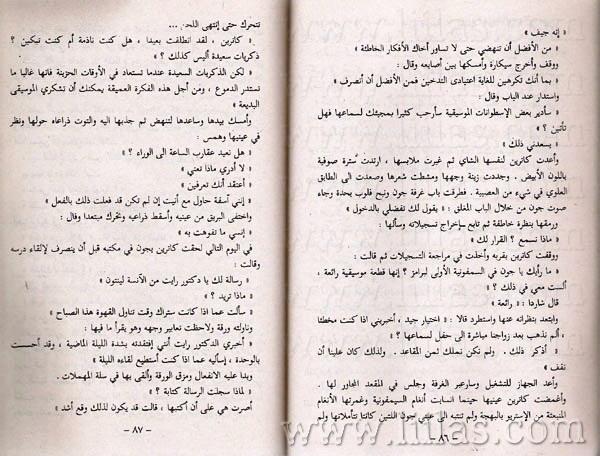 « إنه جيف »
« من الأفضل أن تنهضي حتى لا تساور أخاك الأفكار الخاطئة »
ووقف وأخرج سيكارة وأمسكها بين أصابعه وقال :
« بما أنك تكرهين للغاية اعتيادي التدخين فمن الأفضل أن أنصرف »
واستدار عند الباب وقال :
« سأدير بعض الإسطوانات الموسيقية سأرحب كثيرا بمجيئك لسماعها فهل
تأتين ؟ »
« يسعدني ذلك »
وأعدت كاترين لنفسها الشاي ثم غيرت ملابسها ، ارتدت سترة صوفية
باللون الأبيض . وجددت زينة وجهها ومشطت شعرها وصعدت الى الطابق
العلوي في شيء من العصبية . فطرقت باب غرفة جون ونبح فلوب بحدة وجاء
صوت جون من خلال الباب المغلق : « يقول لك تفضلي بالدخول »
ورمقها بنظرة خاطفة ثم تابع إخراج تسجيلاته وسألها :
« ماذا نسمع ؟ القرار لك »
ووقفت كاترين بقربه وأخذت في مراجعة التسجيلات ثم قالت :
« ما رأيك يا جون في السمفونية الأولى لبرامز ؟ إنها قطعة موسيقية رائعة ،
ألست معي في ذلك ؟ »
قال شاردا : « رائعة »
وابتعد بنظراته عنها واستطرد قائلا : « اختيار جيد ، أخبريني اذا كنت مخطئا
، ألم نذهب بعد زواجنا مباشرة الى حفل لسماعها ؟ »
« أذكر ذلك . ولم نكن نملك ثمن المقاعد . ولذلك كان علينا أن
نقف »
وأعد الجهاز للتشغيل وسار عبر الغرفة وجلس في المقعد المجاور لها .
وأغمضت كاترين عينيها حينما انسابت أنغام السيمفونية وغمرتها الأنغام
المنبعثة من الإستريو بالبهجة ولم تنتبه الى عيني جون اللتين كانتا تتأملانها ولم
– ٨٦ –
تتحرك حتى إنتهى اللحن ...
« كاترين ، لقد انطلقت بعيدا ، هل كنت نائمة أم كنت تبكين ؟
ذكريات سعيدة أليس كذلك ؟ »
« لكن الذكريات السعيدة عندما تستعاد في الأوقات الحزينة فانها غالبا ما
تستدر الدموع ، ومن أجل هذه الفكرة العميقة يمكنك أن تشكري الموسيقى
البديعة »
وأمسك بيدها وساعدها لتنهض ثم جذبها اليه والتوت ذراعاه حولها ونظر
في عينيها وهمس :
« هل نعيد عقارب الساعة الى الوراء ؟ »
« لا أدري ماذا تعني »
« أعتقد أنك تعرفين »
« إنني آسفة حاول مع أنيت إن لم تكن قد فعلت ذلك بالفعل »
واختفى البريق من عينيه وأسقط ذراعيه وتحرك مبتعدا وقال :
« إنسي ما تفوهت به »
في اليوم التالي لحقت كاترين بجون في مكتبه قبل أن ينصرف لإلقاء درسه
وقالت :
« رسالة لك يا دكتور رايت من الآنسة لينتون »
« ماذا تريد ؟ »
« سألت عما اذا كانت ستراك وقت تناول القهوة هذا الصباح »
وناولته ورقة ولاحظت تعابير وجهه وهو يقرأ ما فيها :
« أخبري الدكتور رايت أنني إفتقدته بشدة الليلة الماضية ، وقد أحسست
بالوحدة ، إسأليه عما اذا كنت أستطيع لقاءه الليلة »
وبدا عليه الانفعال ومزق الورقة وألقى بها في سلة المهملات .
« لماذا سجلت الرسالة كتابة ؟ »
أصرت هي على أن أكتبها ، قالت قد يكون لذلك وقع أشد »
– ٨٧ –
www.liilas.com